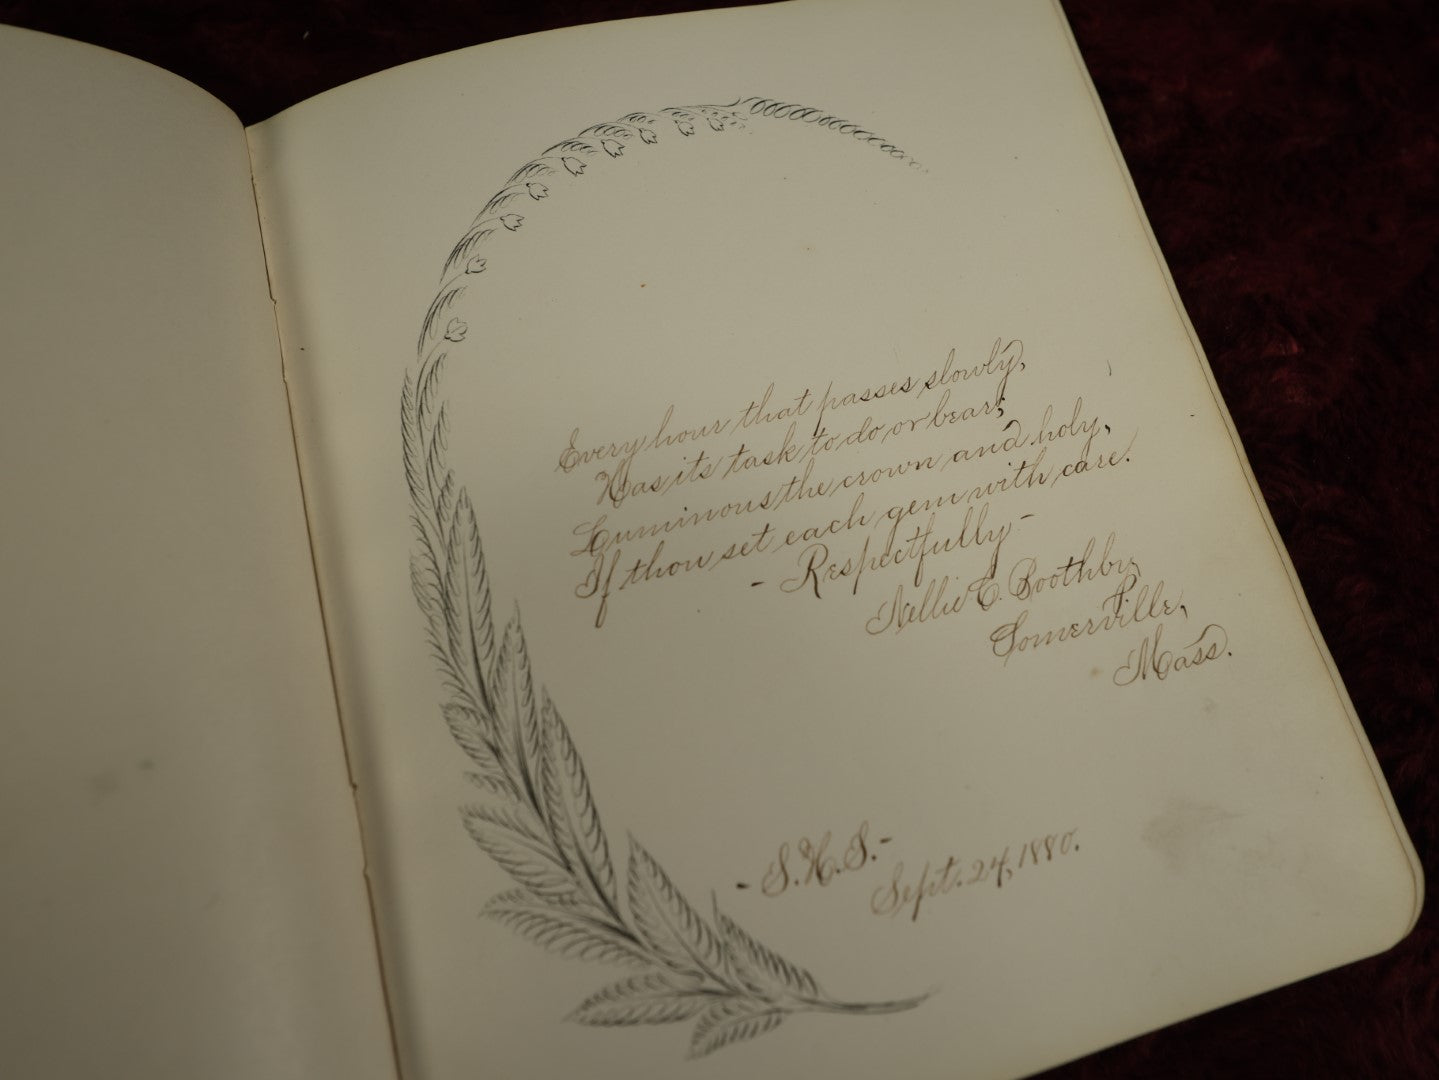 Every hour that passes slowly,
Has its task to do or bear;
Luminous the crown and holy,
If thou set each gem with care.
- Respectfully -
Nellie C. Boothby,
Somerville,
Mass.
- S.H.S. -
Sept. 24, 1880.